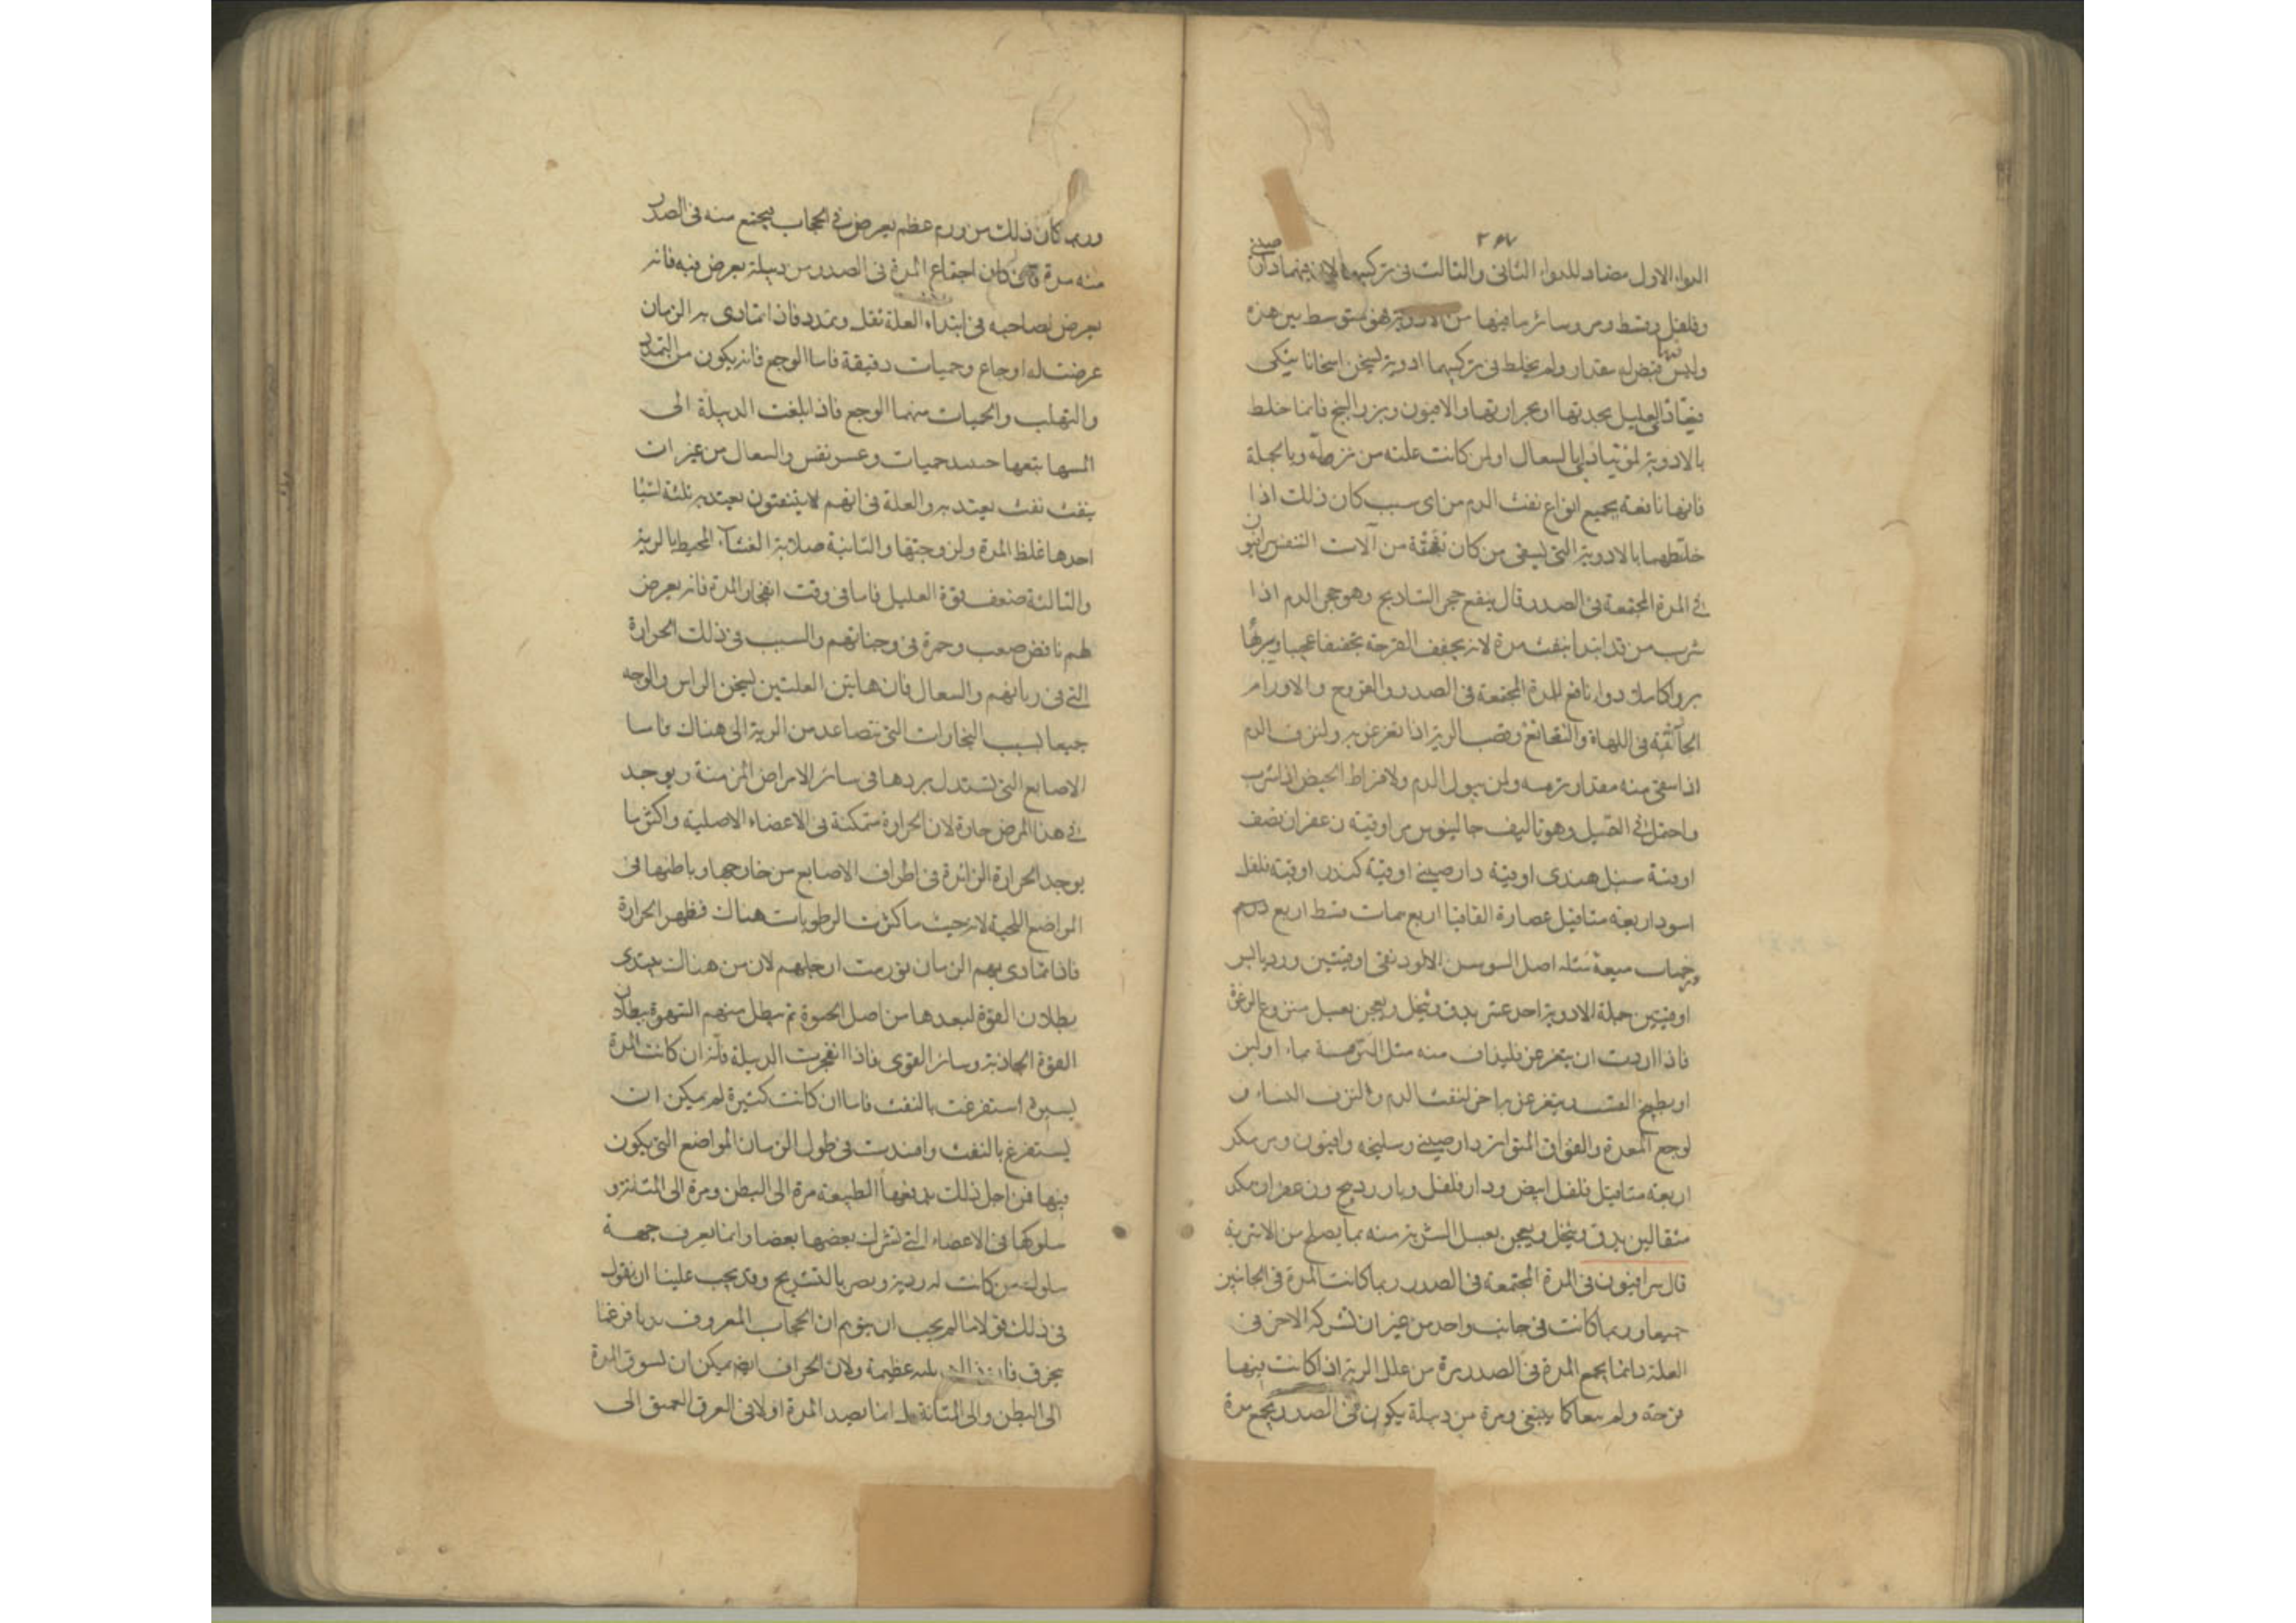 ٣٦٧
الدواء الاول مضاد للدواء الثانى والثالث فى تركيبهما لان فيهما دار صينى
وفلفل وقسط ومر وسائر ما فيها من الادوية هى متوسط بين هذه
وليس فيهما فضل مقدار ولم يخلط فى تركيبهما ادوية تسخن اسخانا ينكى
العليل بحدتها او بحرارتها والافيون وبزر البنج فانما خلط
بالادوية لمن يتاذى بالسعال او لمن كانت علته من نزلة وبالجملة
فانها نافعة بجميع انواع نفث الدم من اى سبب كان ذلك اذا
خلطهما بالادوية التى يسقى من كان نفثه من آلات التنفس
فى المدة المجتمعة فى الصدر قال ينفع حجر الشاذنج وهو حجر الدم اذا
شرب من قد ابتدا بنفث مدة لانه يجفف القرحة تجفيفا عجيبا ويبرئها
برءا كاملا دواء نافع للمدة المجتمعة فى الصدر والقروح والاورام
فى اللهاة والنغانغ وقصب الرية اذا تغرغر به ولنزف الدم
اذا سقى منه مقدار ترمسه ولمن يبول الدم ولافراط الحيض اذا شرب
واحتمل فى القبل وهو تاليف جالينوس مر اوقية زعفران نصف
اوقية سنبل هندى اوقية دارصينى اوقية كندر اوقية فلفل
اسود اربعة مثاقيل عصارة القاقيا اربع قسط اربع
ميعة اصل السوسن نقى اوقيتين ورد يابس
اوقيتين جملة الادوية احد عشر يدق وينخل ويعجن بعسل منزوع الرغوة
فاذا اردت ان يتغرغر فليذاف منه مثل الترمسة بماء او لبن
او بطبيخ يتغرغر به اخر لنفث الدم والنزف النساء و
لوجع المعدة والفواق المتواتر دارصينى وسليخه وافيون ومر مكد
اربعة مثاقيل فلفل ابيض ودار فلفل وبارزد وزعفران مكد
مثقالين يدق وينخل ويعجن بعسل الشربة منه بما يصلح من الاشربة
قال سرافيون فى المدة المجتمعة فى الصدر ربما كانت المدة فى الجانبين
جميعا وربما كانت فى جانب واحد من غير ان تشركه الاخر فى
العلة دائما يجمع المدة فى الصدر مرة من علل الرية اذا كانت فيها
قرحة ولم كما ينبغى ومرة من دبيلة يكون فى الصدر يجمع مدة
وربما كان ذلك من ورم عظم يعرض فى الحجاب فيجتمع منه فى الصدر
منه مدة كان اجتماع المدة فى الصدر من دبيلة يعرض فيه فانه
يعرض لصاحبه فى ابتداء العلة ثقل وتمدد فاذا تمادى به الزمان
عرضت له اوجاع وحميات دقيقة فاما الوجع فانه يكون من التمدد
والتهلب والحميات منهما الوجع فاذا بلغت الدبيلة الى
حميات وعسر نفس والسعال من غير ان
ينفث نفث يعتد به والعلة فى انهم لا ينتفثون يعتد به ثلثة اشيا
احدها غلظ المدة ولزوجتها والثانية صلابة الغشاء المحيط بالرية
والثالثة ضعف قوة العليل فاما فى وقت انفجار المدة فانه يعرض
لهم نافض صعب وحمرة فى وجناتهم والسبب فى ذلك الحرارة
التى فى رياتهم والسعال فان هاتين العلتين تسخن الراس والوجه
جميعا بسبب البخارات التى تتصاعد من الرية الى هناك فاما
الاصابع التى تستدل بردها فى سائر الامراض المزمنة ويوجد
فى هذا المرض حارة لان الحرارة متمكنة فى الاعضاء الاصلية واكثر ما
يوجد الحرارة الزائدة فى اطراف الاصابع من خارجها وباطنها فى
المواضع اللحمية لانه حيث ما كثرت الرطوبات هناك فظهر الحرارة
فاذا تمادى بهم الزمان تورمت ارجلهم لان من هناك يبتدى
بطلان القوة لبعدها من اصل الحيوة ثم يبطل منهم الشهوة ببطلان
القوة الجاذبة وسائر القوى فاذا انفجرت الدبيلة فانه ان كانت المدة
يسيرة استفرغت بالنفث فاما ان كانت كثيرة لم يمكن ان
يستفرغ بالنفث وافسدت فى طول الزمان المواضع التى يكون
فيها فمن اجل ذلك يدفعها الطبيعة مرة الى البطن ومرة الى المثانة و
سلوكها فى الاعضاء التى تشرك بعضها بعضا وانما يعرف جهة
سلوك من كانت له دربة وبصر بالتشريح وقد يجب علينا ان نقول
فى ذلك قولا لم يجب ان يتوهم ان الحجاب المعروف بديافرغما
يخرق فان بلية عظيمة ولان الحراف ايضا يمكن ان تسوق المدة
الى البطن والى المثانة بل انما يصد المدة اولا فى العرق العميق الى